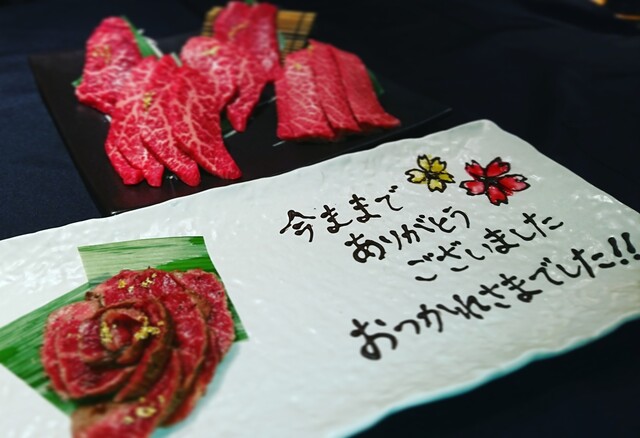 今ままで
ありがとう
ございました
おつかれさまでした!!